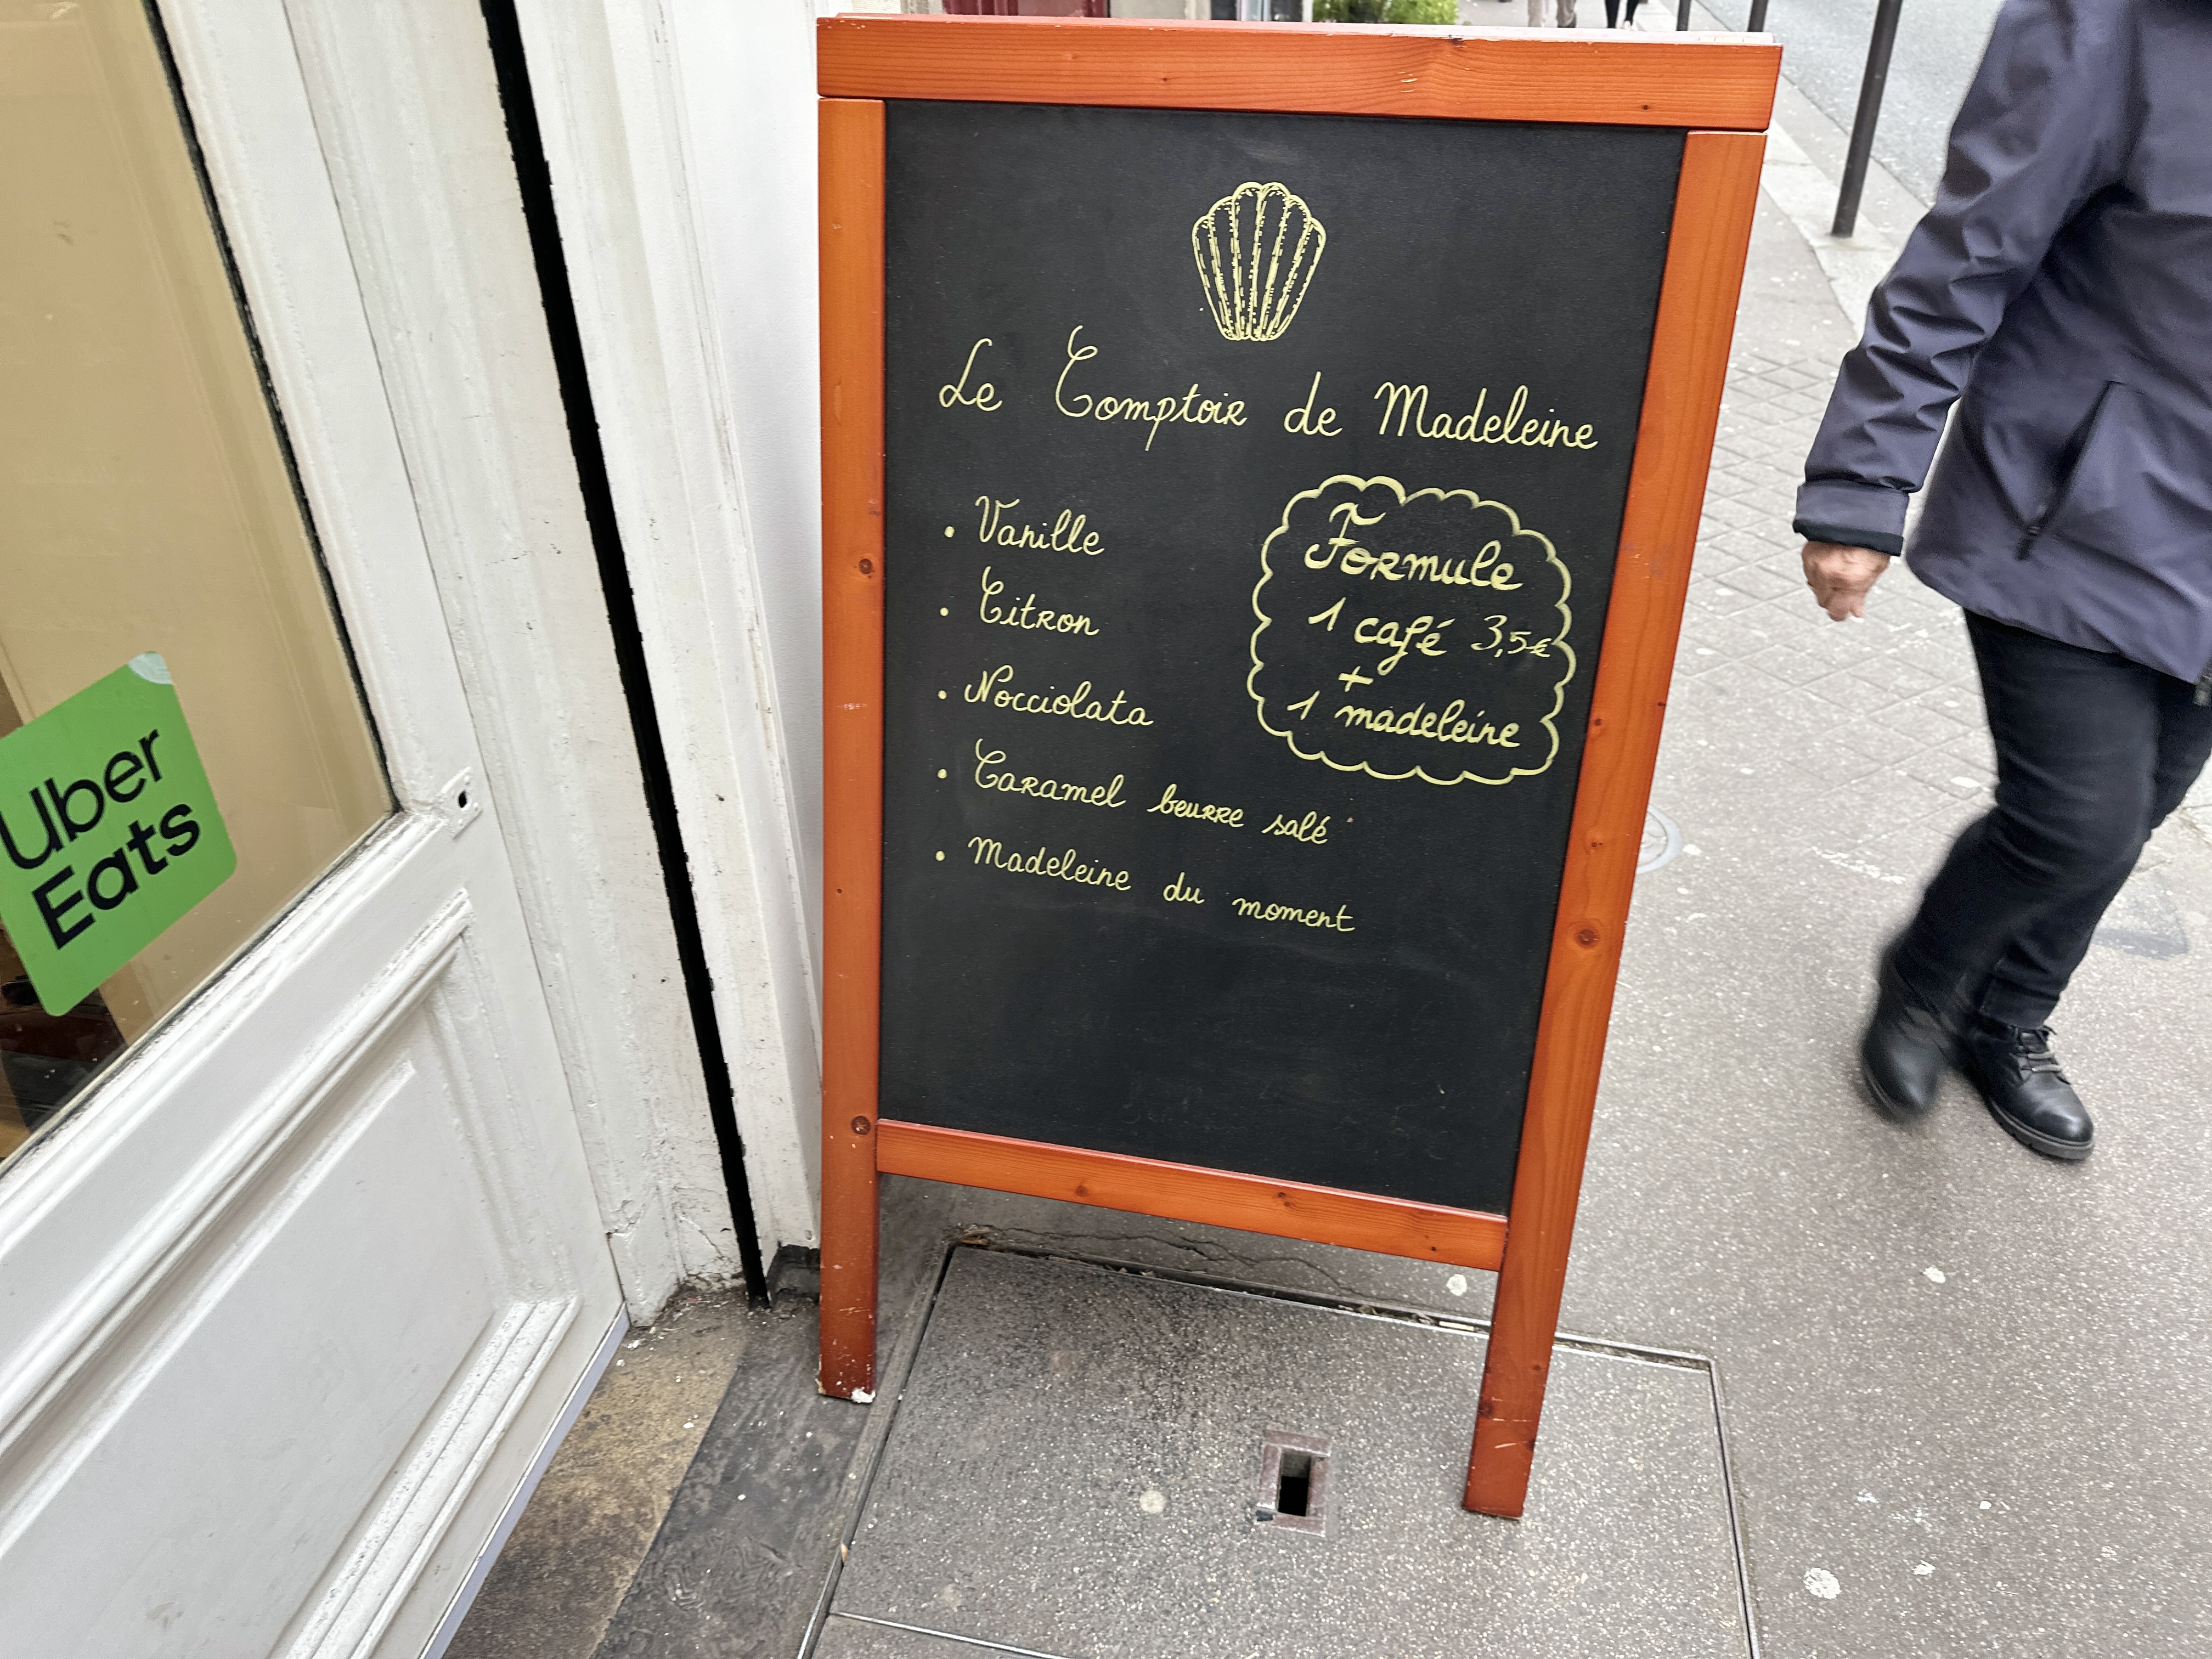 Le Comptoir de Madeleine
• Vanille
• Citron
• Nocciolata
• Caramel beurre salé
• Madeleine du moment
Formule
1 café 3,5€
+
1 madeleine
Uber
Eats